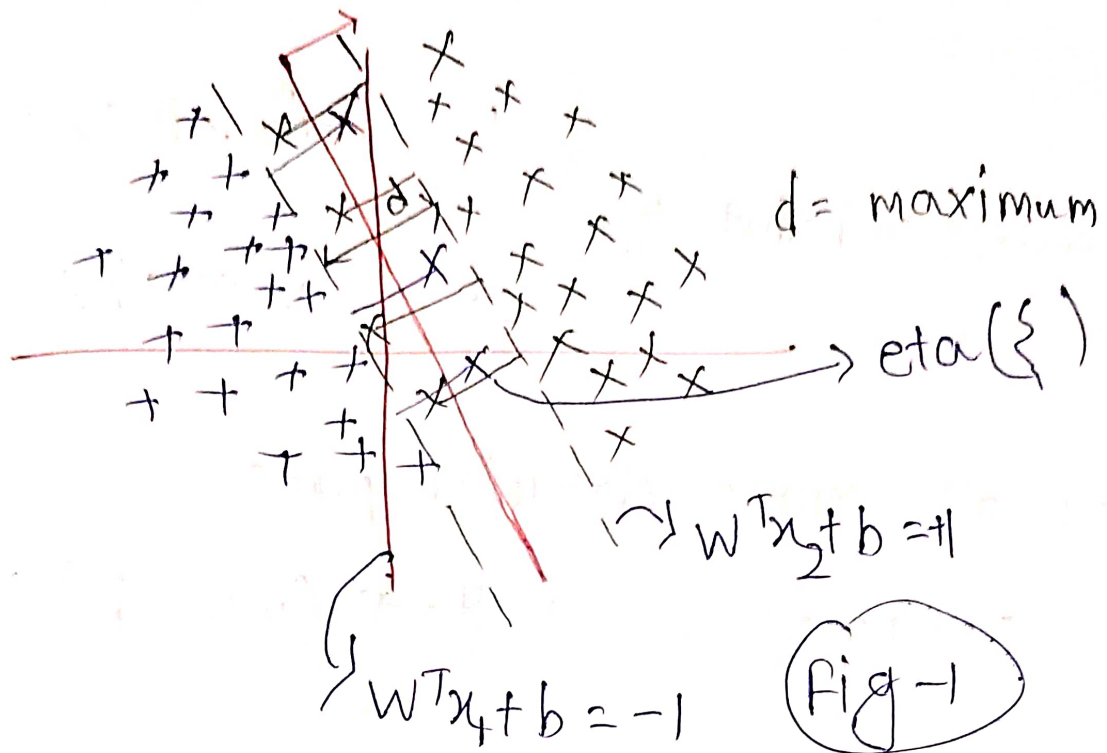 d
d = maximum
eta(ξ)
Wᵀx₂ + b = +1
Wᵀx₁ + b = -1
Fig-1